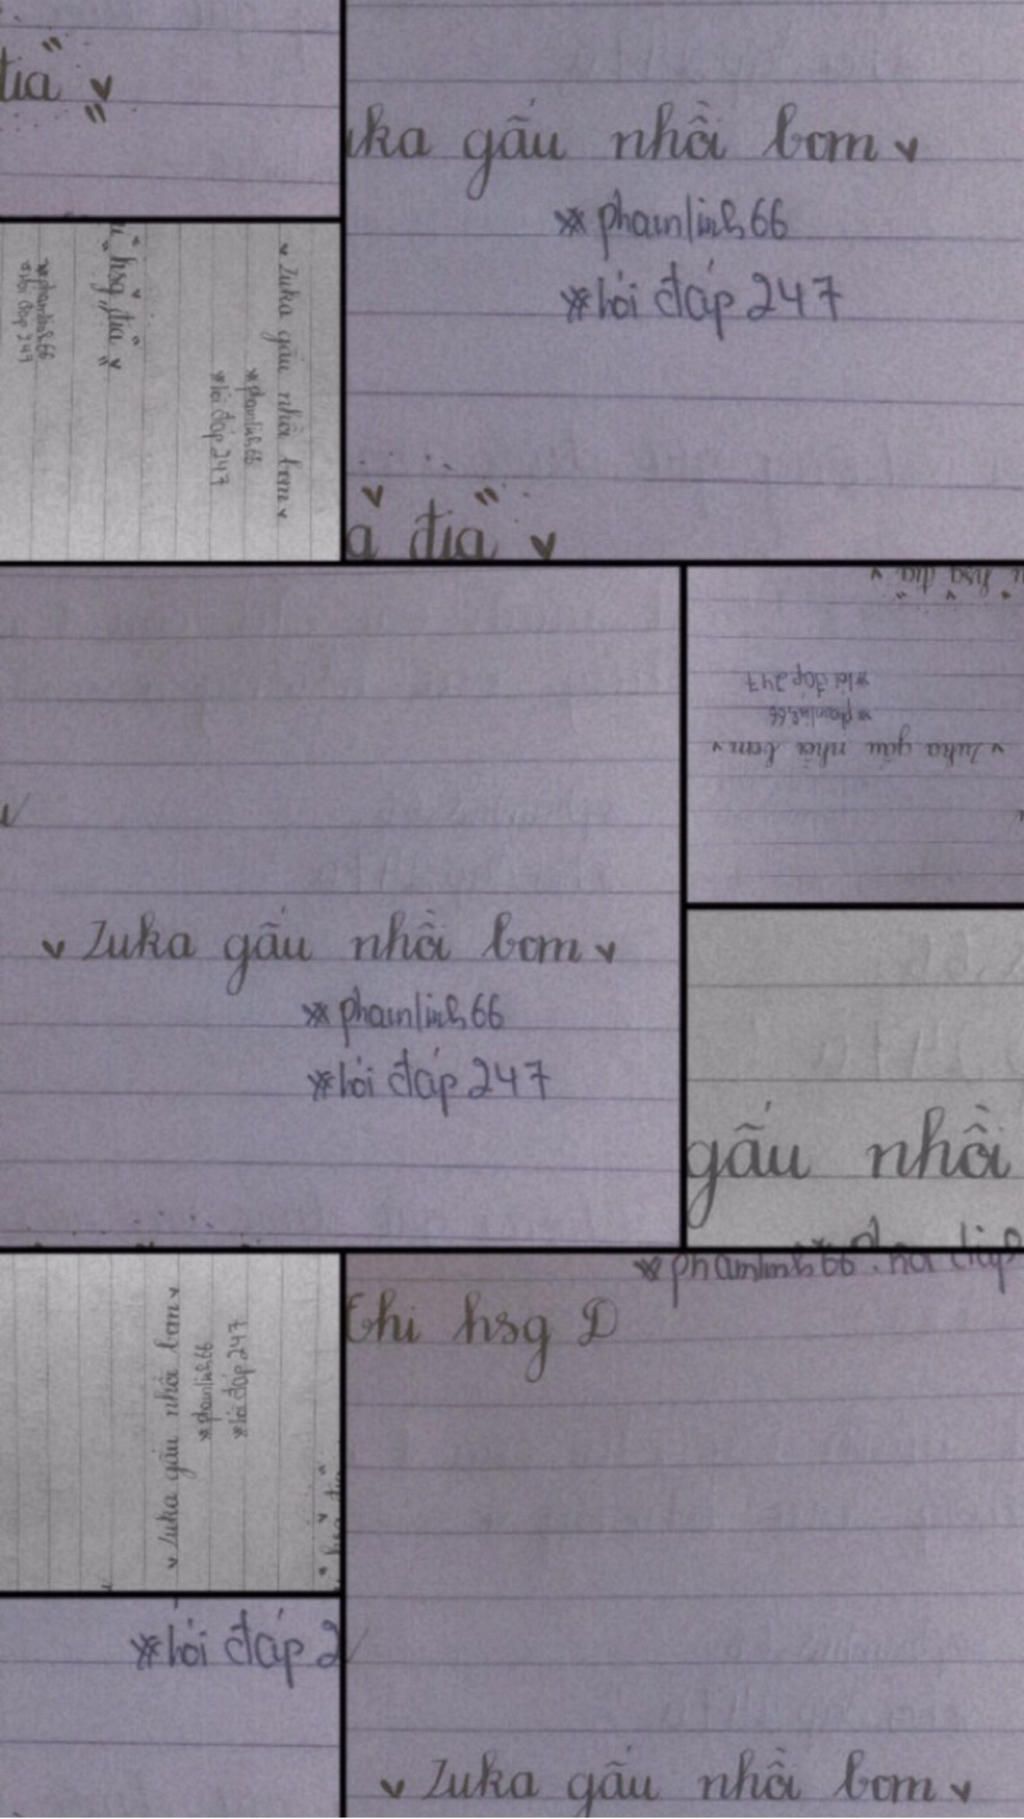 địa" v
uka gấu nhồi bom v
** phamlinh66
** hỏi đáp 247
ả địa" v
" hsg địa" v
** phamlinh66
** hỏi đáp 247
v Zuka gấu nhồi bom v
** phamlinh66
** hỏi đáp 247
v Zuka gấu nhồi bom v
** phamlinh66
** hỏi đáp 247
hsg địa" v
v Zuka gấu nhồi bom v
** phamlinh66
** hỏi đáp 247
gấu nhồi
v Zuka gấu nhồi bom v
** phamlinh66
** hỏi đáp 247
** hỏi đáp 2
** phamlinh66. hỏi đáp
Thi hsg Đ
v Zuka gấu nhồi bom v